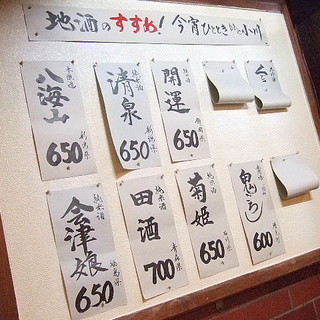 地酒のすすめ！今宵ひととき
八海山
新潟県
650
純米酒
清泉
新潟県
650
開運
静岡県
650
純米酒
会津娘
福島県
650
純米酒
田酒
青森県
700
純米酒
菊姫
石川県
650
鬼ころし
600